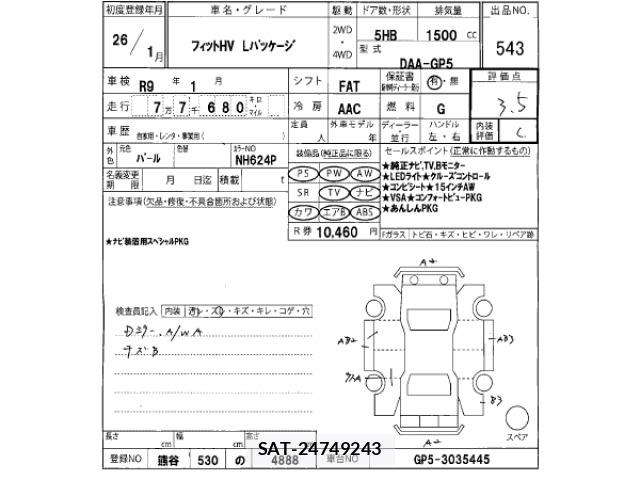 初度登録年月 車名・グレード 駆動 ドア数・形状 排気量 出品NO.
26/1月 フィットHV Lパッケージ 2WD・4WD 5HB 1500cc 543
型式 DAA-GP5
車検 R9年1月 シフト FAT 保証書 有・無 評価点
走行 7万7千680 キロ マイル 冷房 AAC 燃料 G 3.5
車歴 自家用・レンタ・事業用( ) 定員 人 外車モデル 年 ディーラー・並行 ハンドル 左・右 内装評価 C
外色 元色 パール 色替 カラーNO NH624P 装備品(純正品に限る) セールスポイント(正常に作動するもの)
名義変更期限 月 日迄 積載 t PS PW AW
SR TV ナビ
カワ エアB ABS
★純正ナビ,TV,Bモニター
★LEDライト★クルーズコントロール
★コンビシート★15インチAW
★VSA★コンフォートビューPKG
★あんしんPKG
注意事項(欠品・修復・不具合箇所および状態) R券 10,460円 Fガラス トビ石・キズ・ヒビ・ワレ・リペア跡
★ナビ装着用スペシャルPKG
A2
検査員記入 内装 汚レ・スレ・キズ・キレ・コゲ・穴
Dミラー A/W A
キズB
AB2 AB3
B3
スペア
A2
長さ cm 幅 cm 高さ cm
SAT-24749243
登録NO 熊谷 530 の 4888 車台NO GP5-3035445